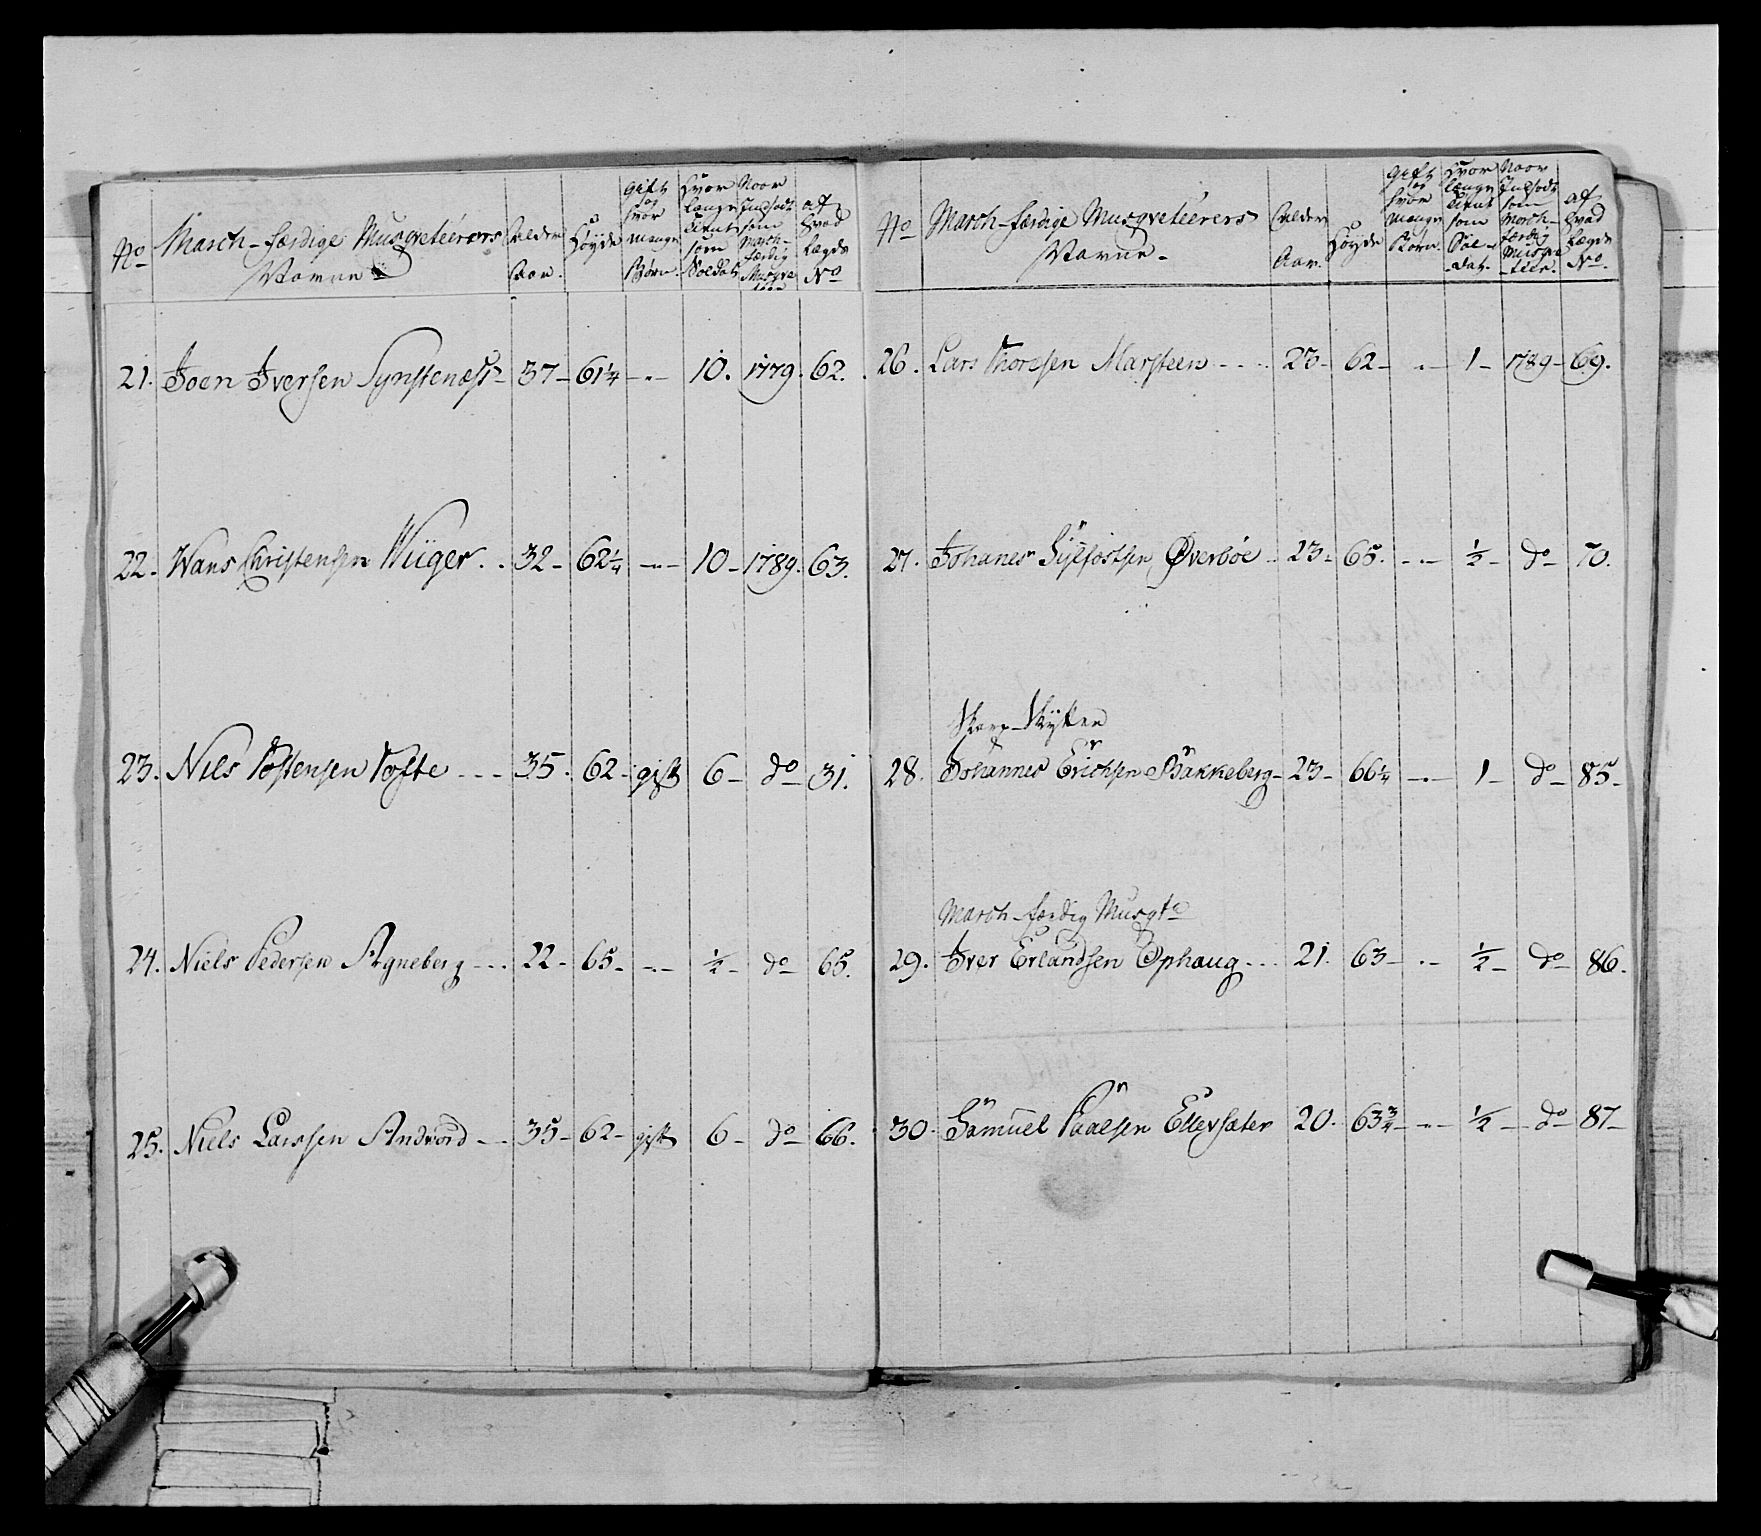 No
March-færdige Musqveteérers
Navne
Alder
Aar.
Høyde
gift
og
hvor
mange
Børn.
Hvor
længe
tient
som
Soldat
Naar
Indsadt
som
March-
færdig
Musqve
teer
af
hvad
Lægds
No
21. Joen Iversen Synstenæss - 37 - 61 1/4 - . - 10. 1779. 62.
22. Hans Christensen Wiiger . . 32 - 62 1/4 - . - 10 - 1789. 63.
23. Nils Tostensen Tofte - - - 35. 62 - gift 6 - do 31.
24. Niels Pedersen Agneberg - - - 22 - 65 - - . - 1/2 - do - 65.
25. Niels Larssen Andvord - - 35 - 62 - gift 6 - do - 66.
No
March-færdige Musqveteérers
Navne -
Alder
Aar.
Høyde
gift
og
hvor
mange
Børn.
Hvor
længe
tient
som
Sol-
dat.
Naar
Indsadt
som
March-
færdig
Musqve
teer.
af
hvad
Lægds
No.
26. Lars Thoresen Marsteen - - . . 23 - 62 - . - 1 - 1789 - 69.
27. Johanes Sylfostsen Øverbøe . . 23 - 65. - . - 1/2 - do - 70.
Skarp-Skytter
28. Johannes Erichsen Bakkeberg - 23 - 66 1/4 - . - 1 - do - 85 -
March-færdig Musqte
29. Iver Erlandsen Ophaug . . . 21. 63 - . - 1/2 - do - 86.
30. Samuel Paalsen Ellevsæter 20. 63 3/4 - . - 1/2 - do - 87 -